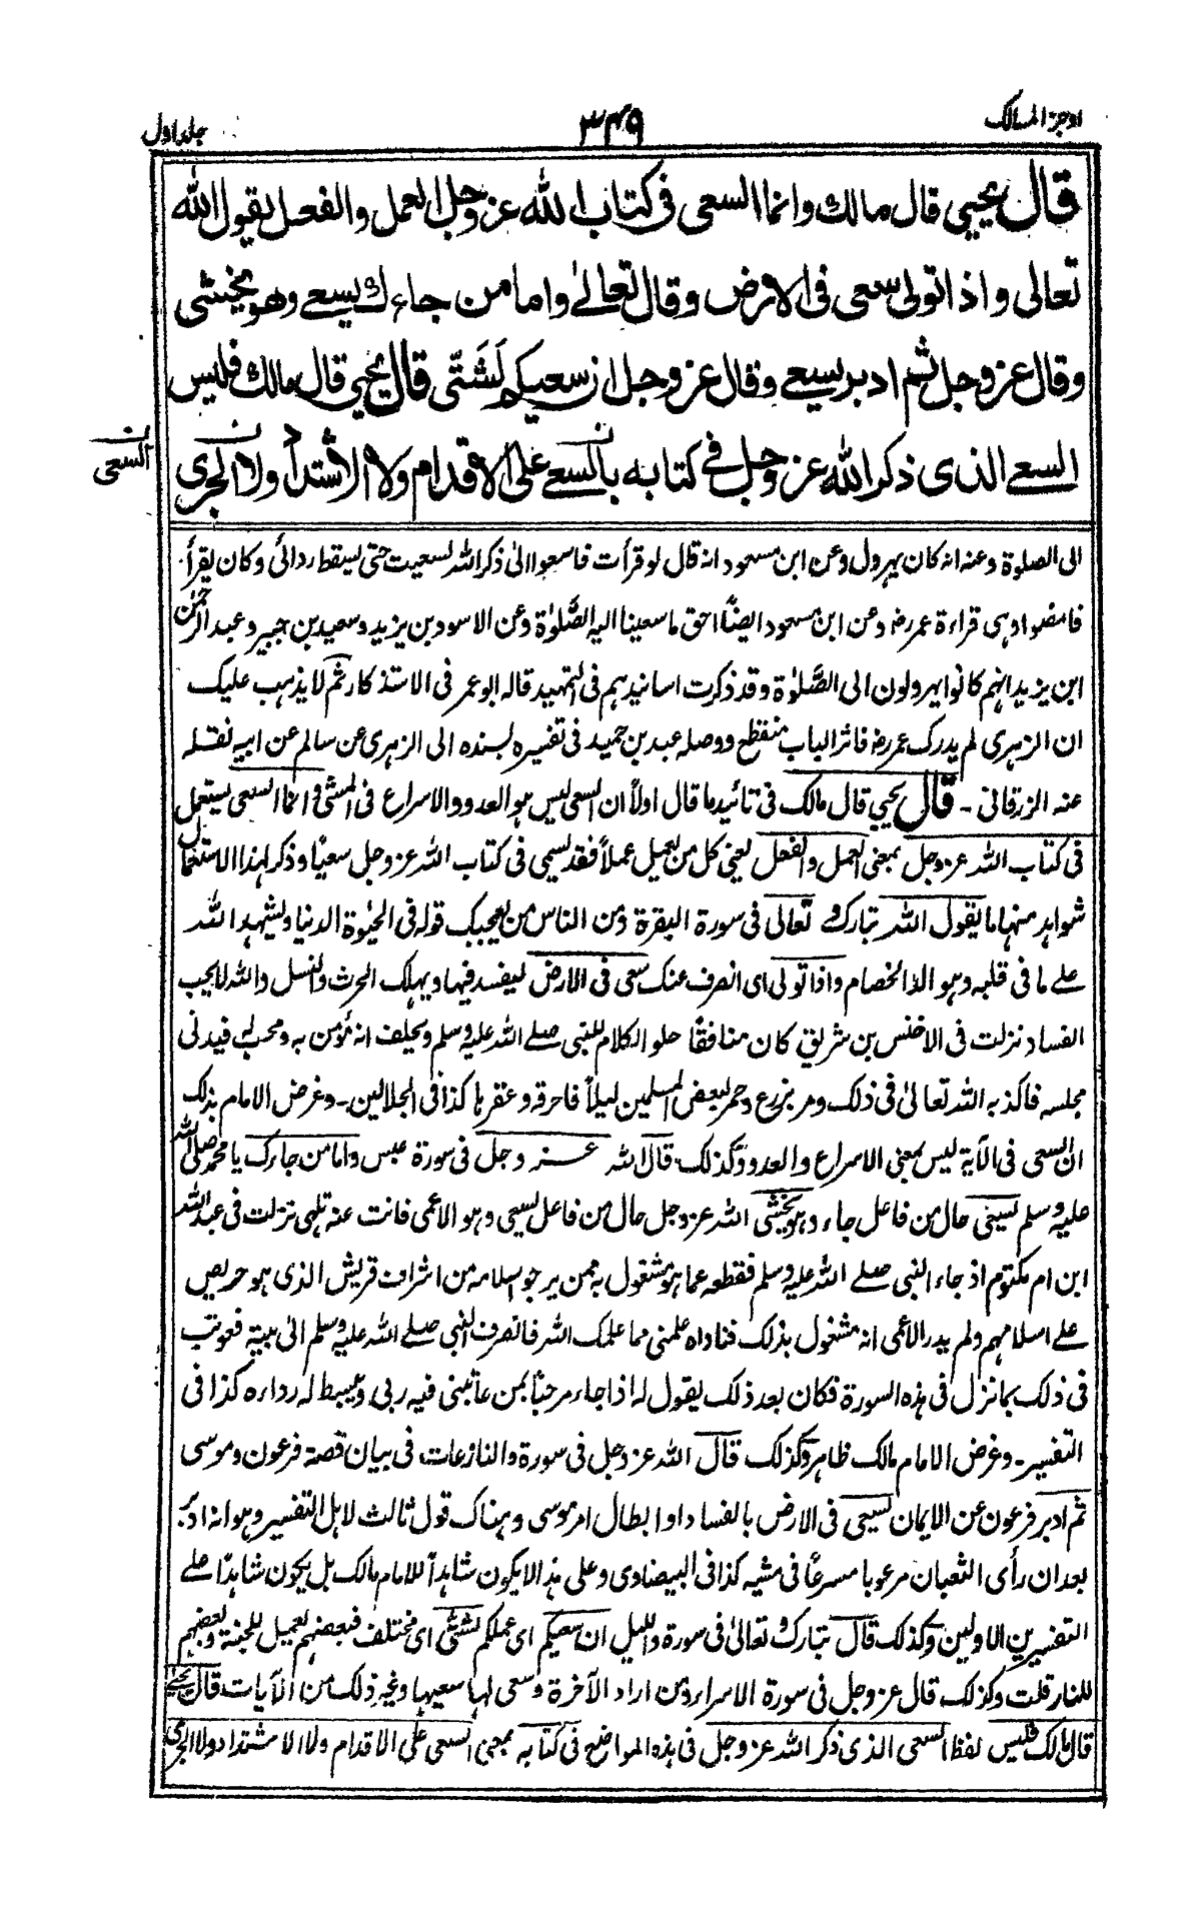 اوجز المسالك
٣٤٩
جلد اول
قال يحيى قال مالك وانما السعى فى كتاب الله عز وجل العمل والفعل يقول الله
تعالى و اذا تولى سعى فى الارض وقال تعالىٰ واما من جاءك يسعے وهو يخشى
وقال عز وجل ثم ادبر يسعے وقال عز وجل ان سعيكم لَشَتّٰى قال يحيى قال مالك فليس
السعے الذى ذكر الله عز وجل فے كتابه بالسعے على الاقدام ولا الاشتداد ولا الجرى
السعى
الى الصلوة وعنه انه كان يهرول وعن ابن مسعود انه قال لو قرأت فاسعوا الىٰ ذكر الله لسعيت حتى يسقط ردائى وكان يقرأ
فامضوا وهى قراءة عمر رض وعن ابن مسعود ايضًا احق ما سعينا اليه الصَّلوٰة وعن الاسود بن يزيد وسعيد بن جبير وعبد الرحمٰن
ابن يزيد انهم كانوا يهرولون الى الصَّلوٰة وقد ذكرت اسانيدهم فى التمهيد قاله ابو عمر فى الاستذكار ثم لا يذهب عليك
ان الزهرى لم يدرك عمر رض فاثر الباب منقطع ووصله عبد بن حميد فى تفسيره بسنده الى الزهرى عن سالم عن ابيه نقله
عنه الزرقانى ۔ قال يحيى قال مالك فى تائيد ما قال اولاً ان السعى ليس هو العدو والاسراع فى المشى وانما السعى يستعمل
فى كتاب الله عز وجل بمعنى العمل والفعل يعنى كل من يعمل عملاً فقد سمى فى كتاب الله عز وجل سعيًا وذكر لهذا الاستعمال
شواهد منها ما يقول الله تبارك و تعالى فى سورة البقرة ومن الناس من يعجبك قوله فى الحيٰوة الدنيا ويشهد الله
علے ما فى قلبه وهو الد الخصام واذا تولى اى انصرف عنك سعى فى الارض ليفسد فيها ويهلك الحرث والنسل والله لا يحب
الفساد نزلت فى الاخنس بن شريق كان منافقًا حلو الكلام للنبى صلے الله عليه وسلم ويحلف انه مؤمن به ومحب له فيدنى
مجلسه فاكذبه الله تعالىٰ فى ذلك ومر بزرع وحمر لبعض المسلمين ليلاً فاحرقه وعقرها كذا فى الجلالين ۔ وغرض الامام بذلك
ان السعى فى الآية ليس بمعنى الاسراع والعدو وكذلك قال الله عز وجل فى سورة عبس واما من جاءك يا محمد صلى الله
عليه وسلم يسعى حال من فاعل جاء وهو يخشى الله عز وجل حال من فاعل يسعى وهو الاعمى فانت عنه تلهى نزلت فى عبد الله
ابن ام مكتوم اذ جاء النبى صلے الله عليه وسلم فقطعه عما هو مشغول به ممن يرجو اسلامه من اشراف قريش الذى هو حريص
علے اسلامهم ولم يدر الاعمى انه مشغول بذلك فناداه علمنى مما علمك الله فانصرف النبى صلے الله عليه وسلم الىٰ بيته فعوتب
فى ذلك بما نزل فى هذه السورة فكان بعد ذلك يقول له اذا جاء مرحبًا بمن عاتبنى فيه ربى ويبسط له رداءه كذا فى
التفسير ۔ وغرض الامام مالك ظاهر وكذلك قال الله عز وجل فى سورة والنازعات فى بيان قصة فرعون وموسى
ثم ادبر فرعون عن الايمان يسعى فى الارض بالفساد او ابطال امر موسى وهناك قول ثالث لاهل التفسير وهو انه ادبر
بعد ان رأى الثعبان مرعوبا مسرعًا فى مشيه كذا فى البيضاوى وعلى هذا لا يكون شاهداً للامام مالك بل يكون شاهدًا علے
التفسيرين الاولين وكذلك قال تبارك و تعالىٰ فى سورة والليل ان سعيكم اى عملكم لشتى اى مختلف فبعضهم يعمل للجنة وبعضهم
للنار قلت وكذلك قال عز وجل فى سورة الاسراء ومن اراد الآخرة وسعى لها سعيها وغير ذلك من الآيات قال يحيى
قال مالك فليس لفظ السعى الذى ذكر الله عز وجل فى هذه المواضع فى كتابه بمعنى السعى على الاقدام ولا الاشتداد ولا الجرى